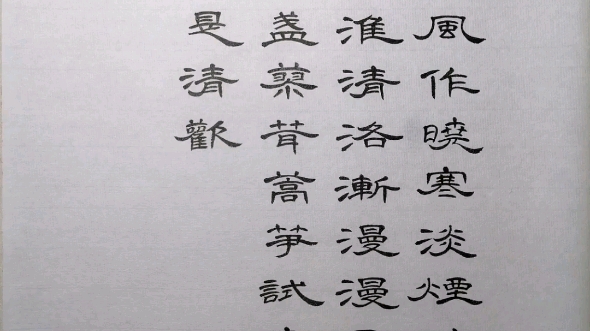 風作曉寒淡煙
淮清洛漸漫漫
盞蓼茸蒿笋試
是清歡